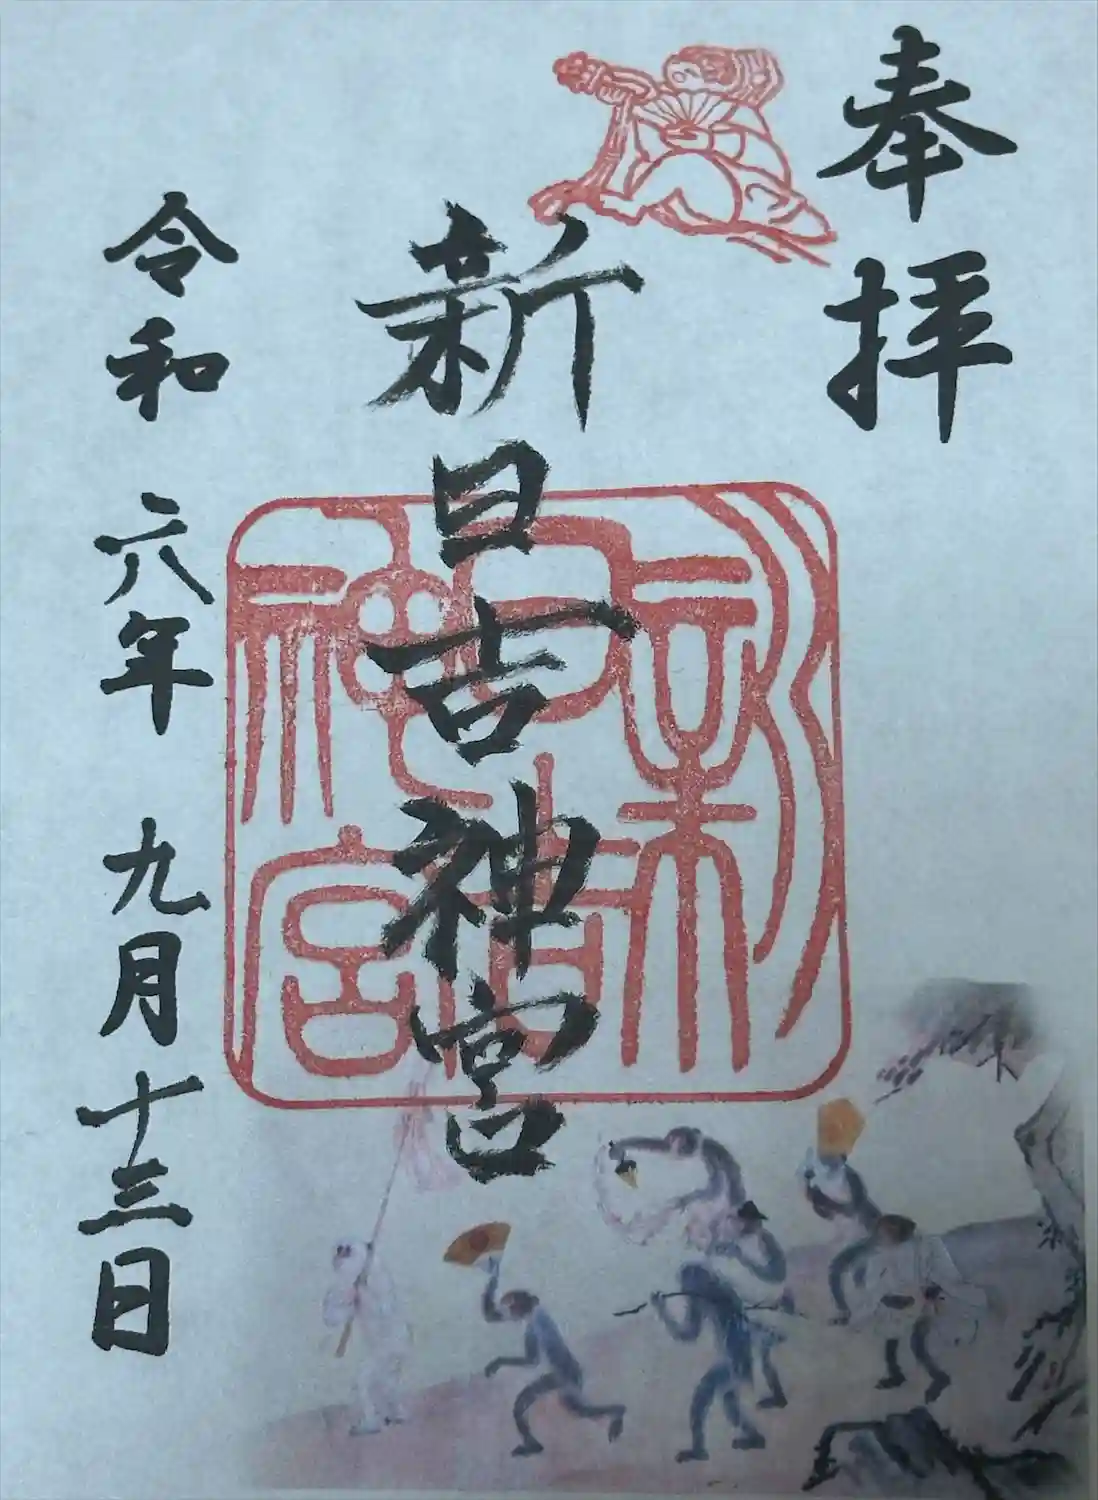 奉拝
新日吉神宮
新日吉神宮
令和六年九月十三日